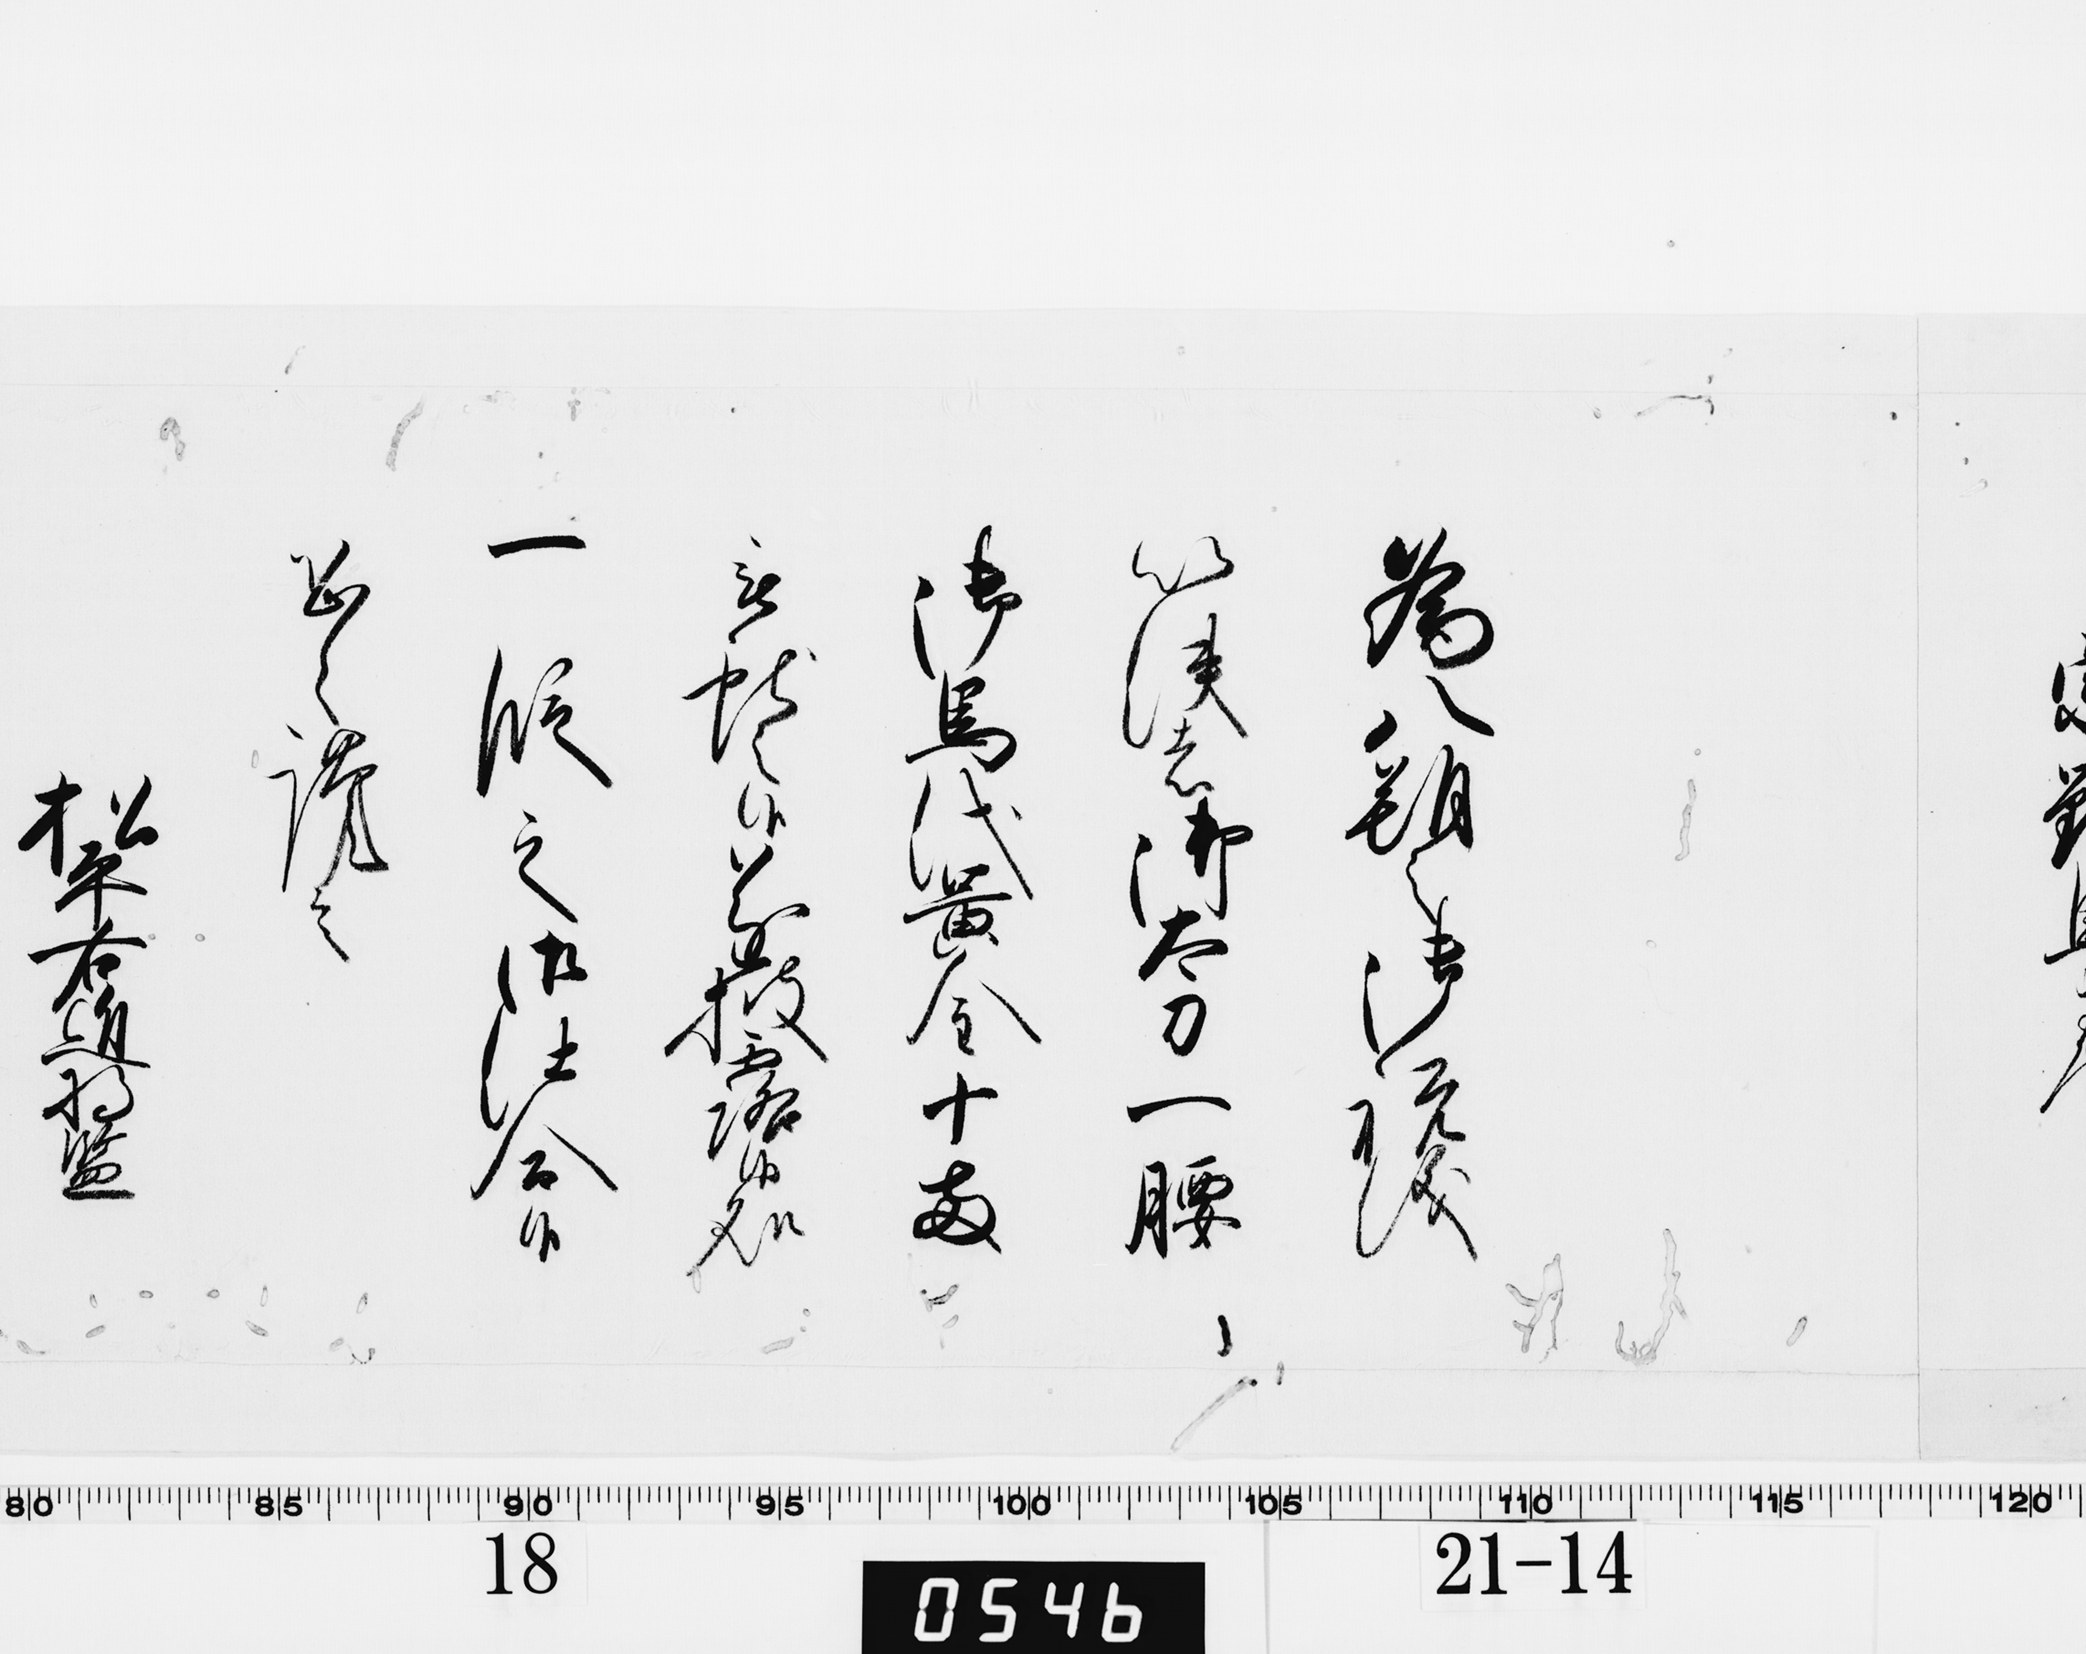 為八朔之御祝儀
以使者御太刀一腰
御馬代黄金十両
被献之候遂披露候処
一段之御仕合候
恐々謹言
松平右近将監
80 85 90 95 100 105 110 115 120
18
0546
21-14